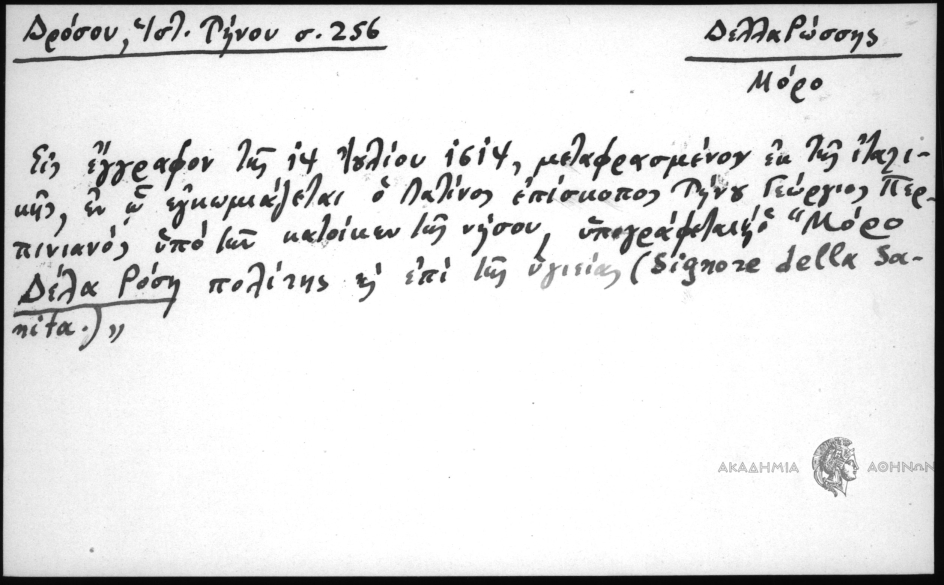 Δρόσου, Ἱστ. Τήνου σ. 256
ΔελλαΡώσσης
Μόρο
Εἰς ἔγγραφον τῆς 14 Ἰουλίου 1614, μεταφρασμένον ἐκ τῆς ἰταλι-
κῆς, ἐν ᾧ ἐγκωμιάζεται ὁ Λατῖνος ἐπίσκοπος Τήνου Γεώργιος Περ-
πινιανός ὑπό τῶν κατοίκων τῆς νήσου, ὑπογράφεται ὁ "Μόρο
Δέλα Ρόση πολίτης κ ἐπί τῆς ὑγιείας (Signore della Sa-
nita.)"
ΑΚΑΔΗΜΙΑ ΑΘΗΝΩΝ